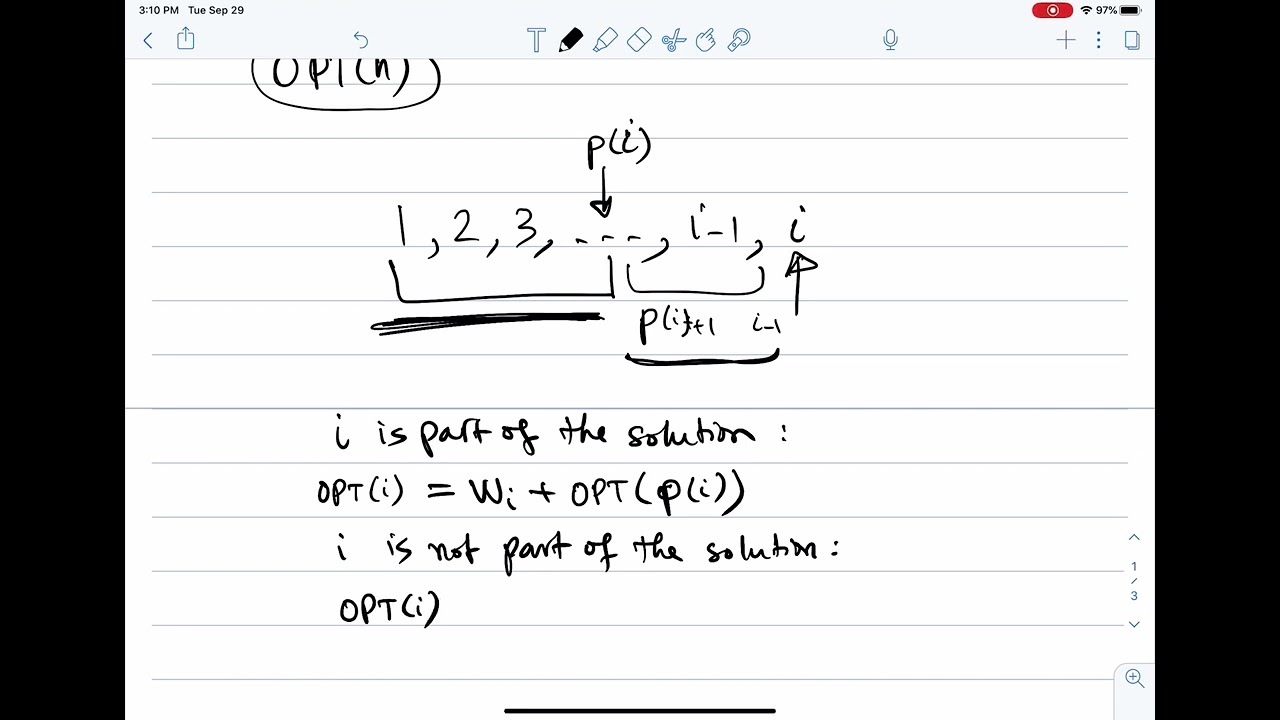 3:10 PM Tue Sep 29
97%
T
OPT(n)
p(i)
1, 2, 3, ---, i-1, i
p(i)+1 i-1
i is part of the solution :
OPT(i) = Wi + OPT(p(i))
i is not part of the solution :
OPT(i)
1
/
3